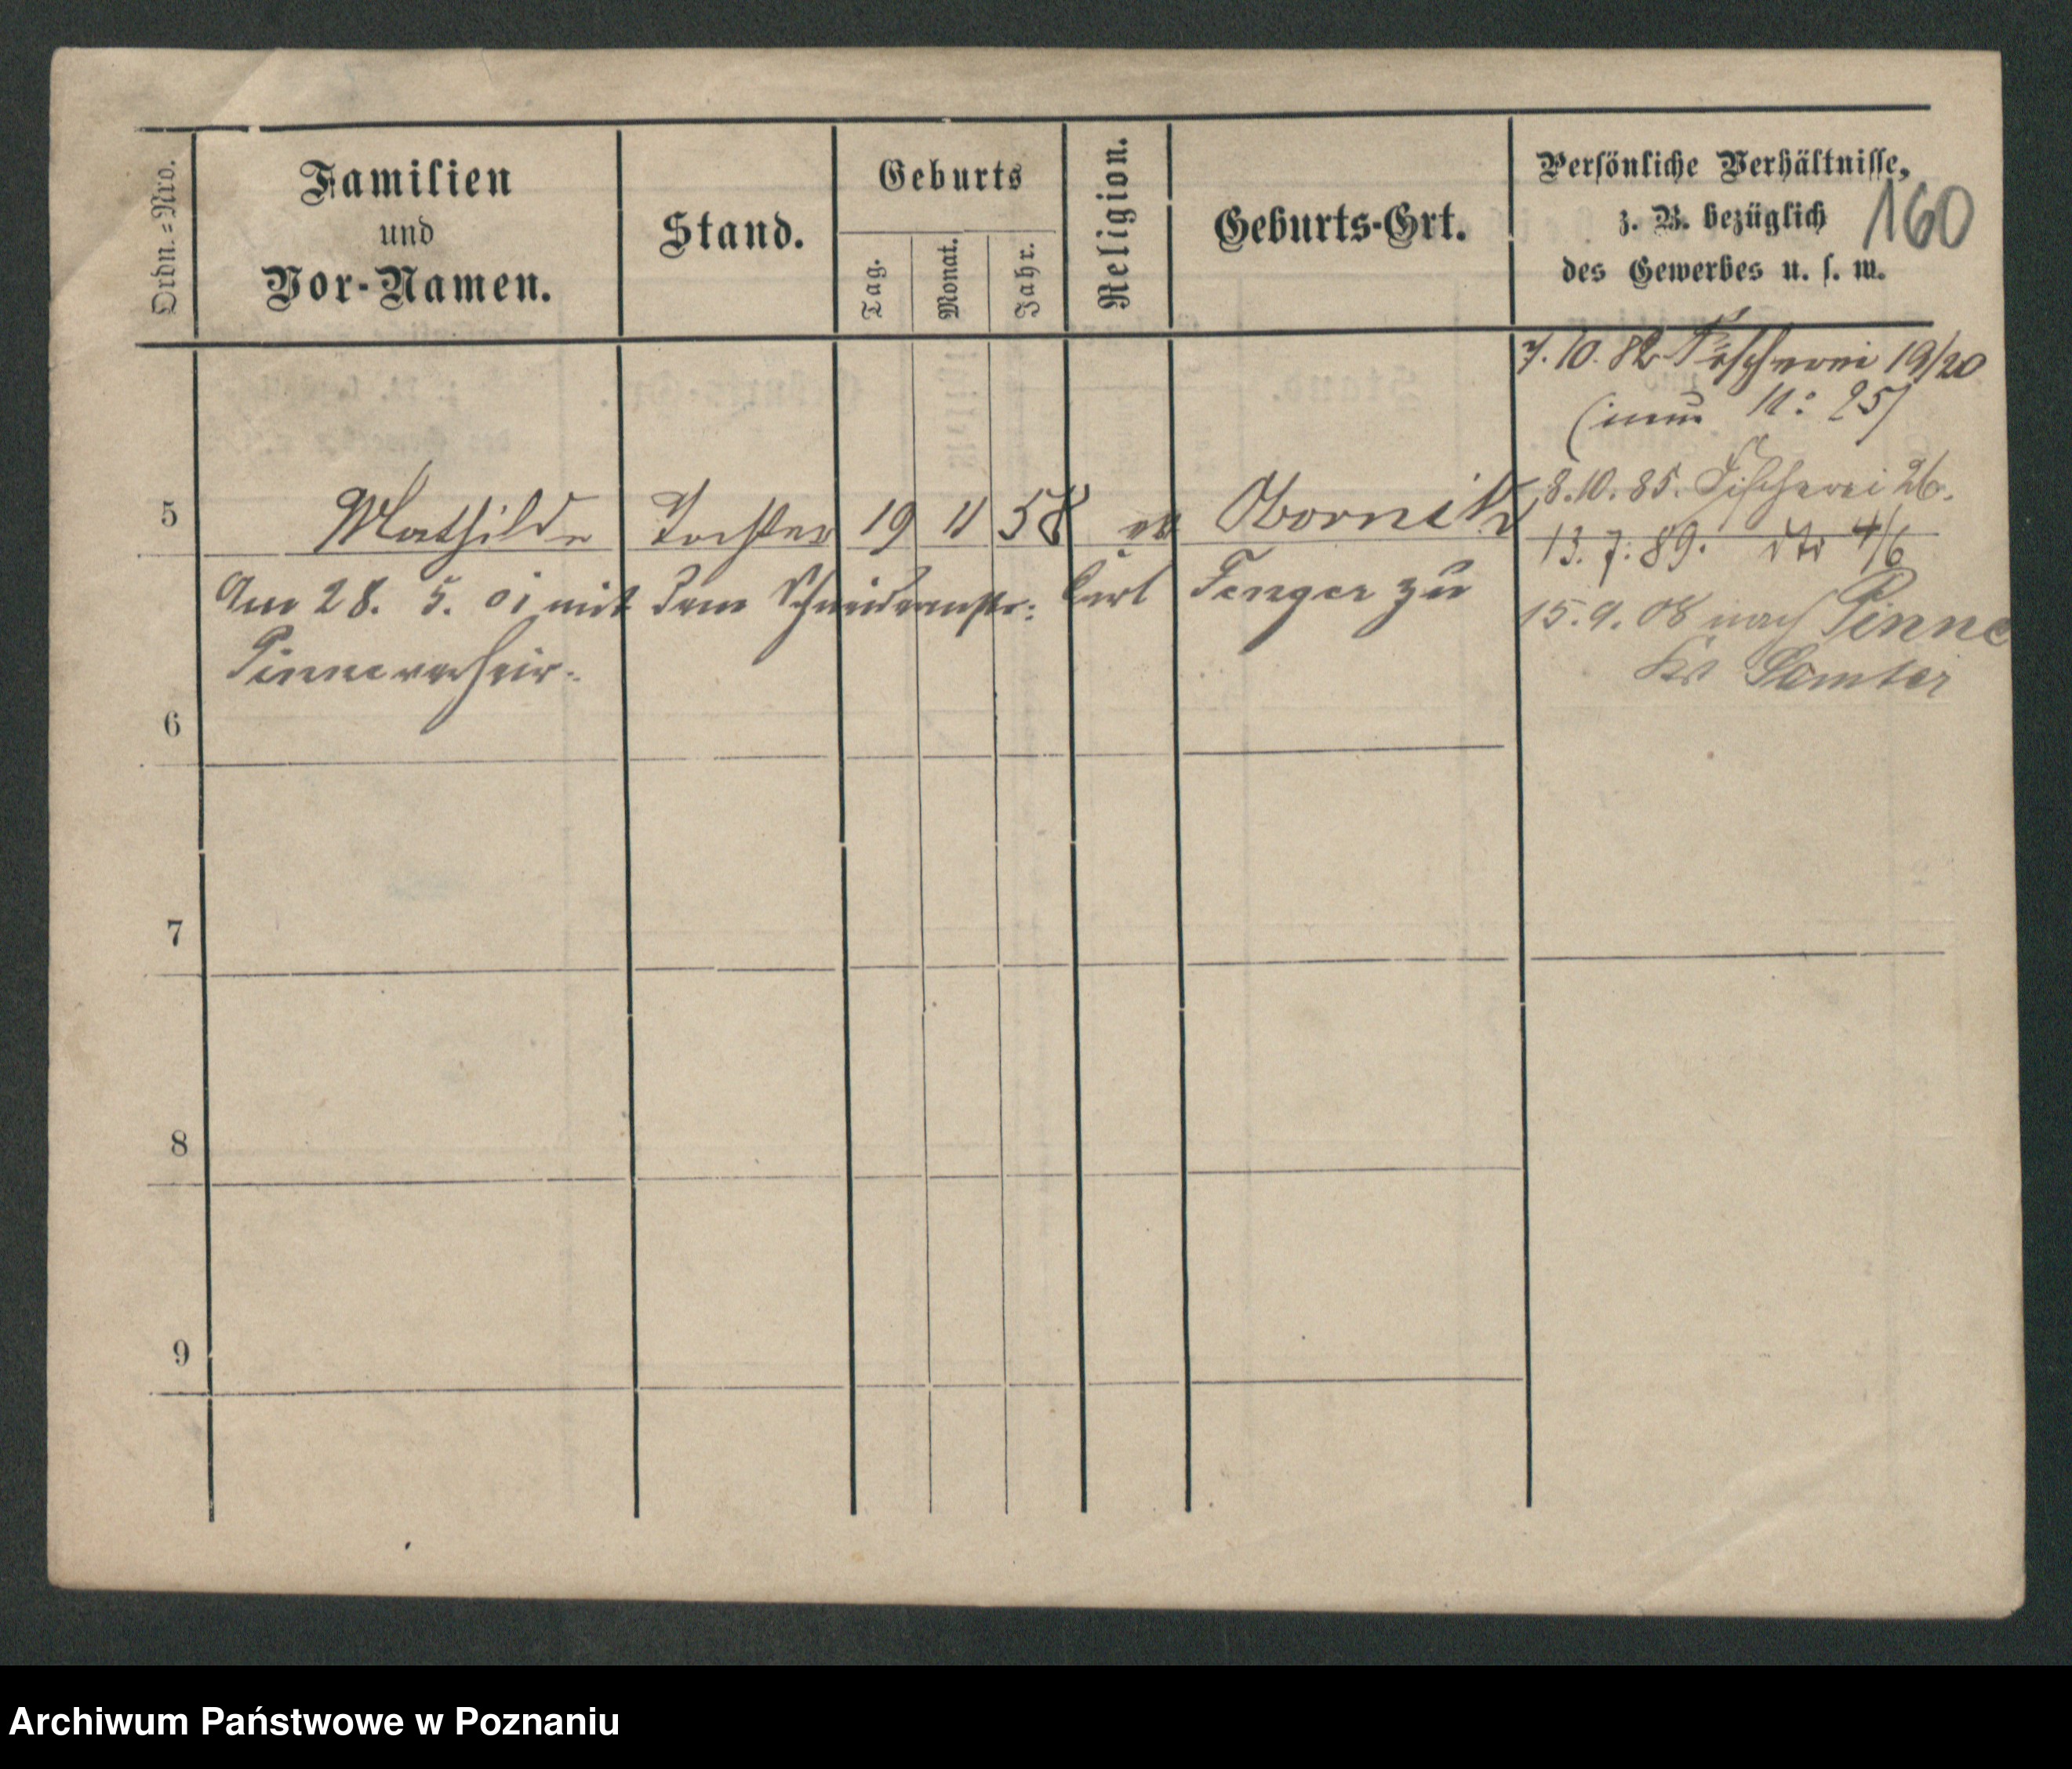 Ordn.=Nro.
Familien
und
Vor-Namen.
Stand.
Geburts
Tag.
Monat.
Jahr.
Religion.
Geburts-Ort.
Persönliche Verhältnisse,
z. B. bezüglich
des Gewerbes u. s. w.
160
7. 10. 82 Fischerei 19/20
(neue N: 25)
8. 10. 85. Fischerei 26.
5 Mathilde Tochter 19 11 58 ev Obornik
13. 7. 89. dto 4/6
Am 28. 5. 01 mit dem Schneidermstr: Carl Fenger zu
Pinne verheir.
15. 9. 08 nach Pinne
Kr Samter
6
7
8
9
Archiwum Państwowe w Poznaniu